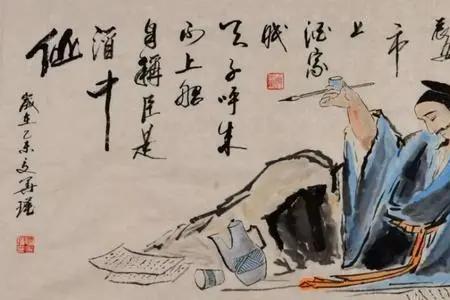 市
上
酒家
眠
天子呼来
不上船
自稱臣是
酒中
仙
歲在乙未